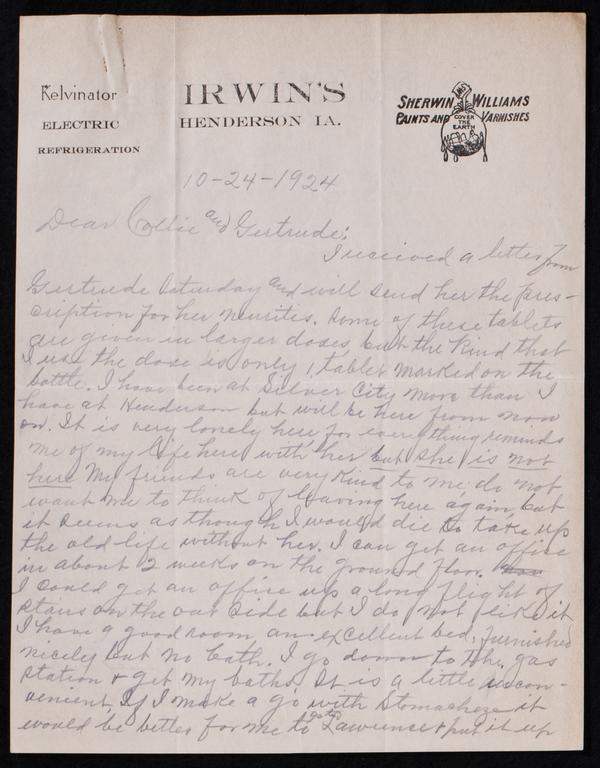 Kelvinator
ELECTRIC
REFRIGERATION
IRWIN'S
HENDERSON IA.
SHERWIN WILLIAMS
PAINTS AND VARNISHES
SWP
COVER THE EARTH
10-24-1924
Dear Collie and Gertrude:
I received a letter from
Gertrude Saturday and will send her the pres-
cription for her neuritis. Some of these tablets
are given in larger doses but the kind that
I use the dose is only 1 tablet marked on the
bottle. I have been at Silver City more than I
have at Henderson but will be here from now
on. It is very lonely here for everything reminds
me of my life here with her but she is not
here My friends are very kind to me, do not
want me to think of leaving here again, but
it seems as though I would die to take up
the old life without her. I can get an office
in about 2 weeks on the ground floor.
I could get an office up a long flight of
stairs on the out side but I do not like it
I have a good room, an excellent bed, furnished
nicely but no bath. I go down to the gas
station & get my baths. It is a little incon-
venient. If I make a go with Stomacheze it
would be better for me to go to Lawrence & put it up